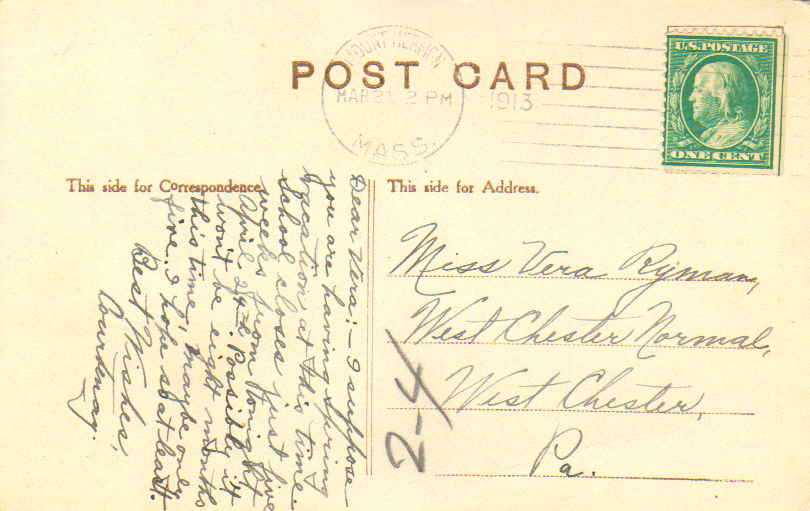 MOUNT HERMON
MAR 21 2 PM
1913
MASS.
POST CARD
U.S. POSTAGE
ONE CENT
This side for Correspondence.
This side for Address.
Dear Vera:- I suppose
you are having spring
vacation at this time.
School closes just five
weeks from tonight
April 24th. Possible it
won't be eight months
this time, maybe only
five. I hope so at least.
Best Wishes,
Courtenay.
Miss Vera Ryman,
West Chester Normal,
West Chester,
Pa.
2-4